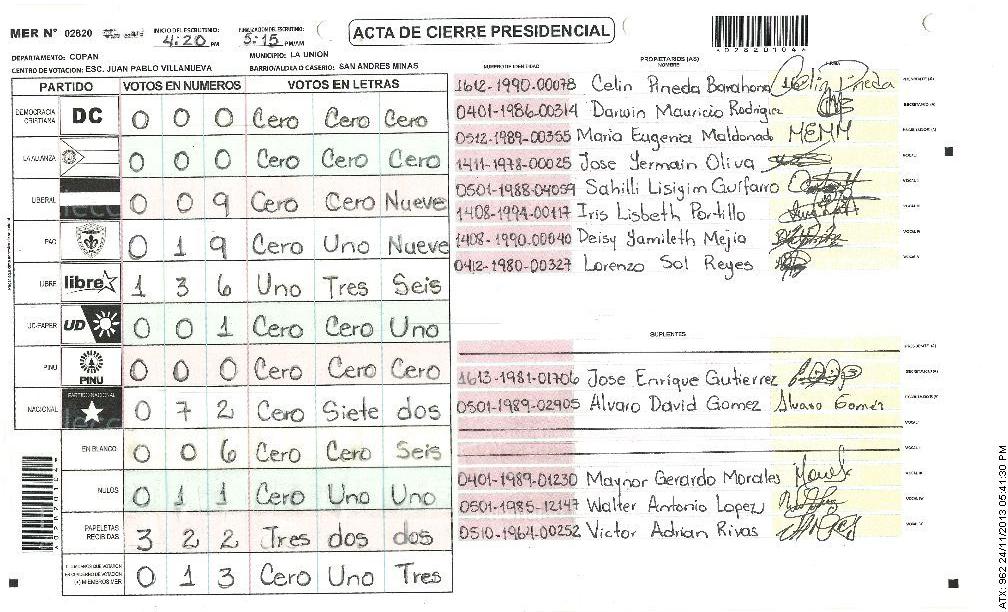 MER N° 02820
INICIO DEL ESCRUTINIO: 4:20 PM
FINALIZACION DEL ESCRUTINIO: 5:15 PM/AM
ACTA DE CIERRE PRESIDENCIAL
DEPARTAMENTO: COPAN MUNICIPIO: LA UNION
CENTRO DE VOTACION: ESC. JUAN PABLO VILLANUEVA BARRIO/ALDEA O CASERIO: SAN ANDRES MINAS
PARTIDO VOTOS EN NUMEROS VOTOS EN LETRAS
DEMOCRACIA CRISTIANA DC 0 0 0 Cero Cero Cero
LA ALIANZA 0 0 0 Cero Cero Cero
LIBERAL 0 0 9 Cero Cero Nueve
PAC 0 1 9 Cero Uno Nueve
LIBRE libre 1 3 6 Uno Tres Seis
UD-FAPER UD 0 0 1 Cero Cero Uno
PINU PINU 0 0 0 Cero Cero Cero
NACIONAL PARTIDO NACIONAL 0 7 2 Cero Siete dos
EN BLANCO 0 0 6 Cero Cero Seis
NULOS 0 1 1 Cero Uno Uno
PAPELETAS RECIBIDAS 3 2 2 Tres dos dos
(+) MIEMBROS MER 0 1 3 Cero Uno Tres
PROPIETARIOS (AS)
NUMERO DE IDENTIDAD NOMBRE FIRMA
1612-1990-00078 Celin Pineda Barahona Celin Pineda PRESIDENTE (A)
0401-1986-00314 Darwin Mauricio Rodrigez SECRETARIO (A)
0512-1989-00355 Maria Eugenia Maldonado MEMM ESCRUTADOR (A)
1411-1978-00025 Jose Yermain Oliva VOCAL I
0501-1988-04059 Sahilli Lisigim Guifarro VOCAL II
1408-1994-00117 Iris Lisbeth Portillo VOCAL III
1408-1990-00040 Deisy Yamileth Mejia VOCAL IV
0412-1980-00327 Lorenzo Sol Reyes VOCAL V
SUPLENTES
PRESIDENTE (A)
1613-1981-01706 Jose Enrique Gutierrez SECRETARIO (A)
0501-1989-02905 Alvaro David Gomez Alvaro Gomez ESCRUTADOR (A)
VOCAL I
VOCAL II
0401-1989-01230 Maynor Gerardo Morales VOCAL III
0501-1985-12147 Walter Antonio Lopez VOCAL IV
0510-1964-00252 Victor Adrian Rivas VOCAL V
ATX: 962 24/11/2013 05:41:30 PM